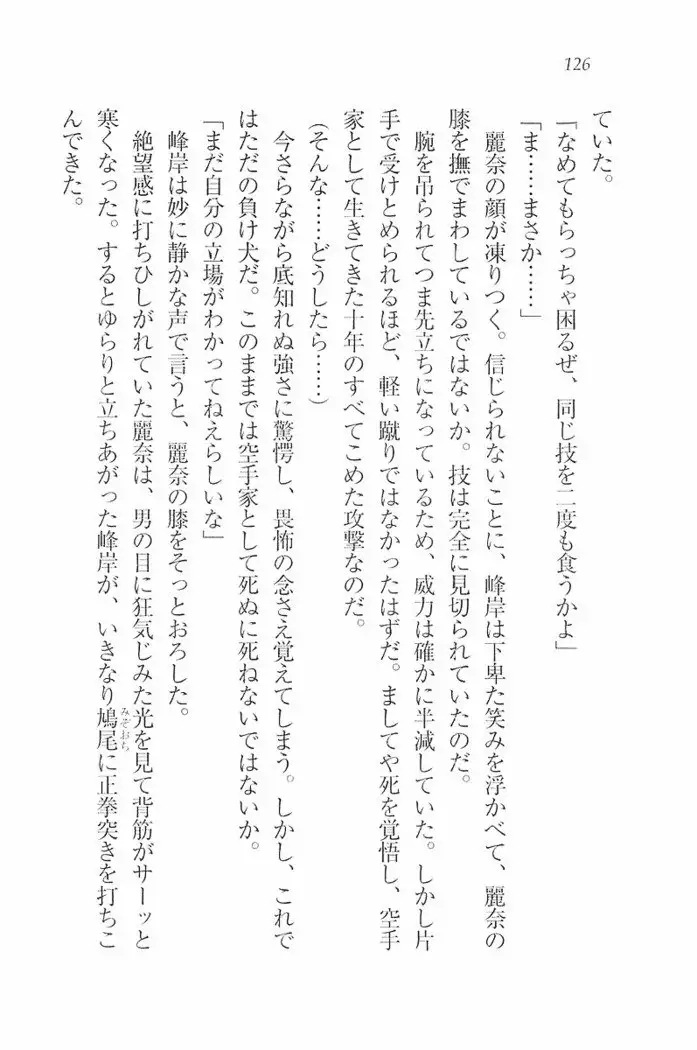 126
ていた。
「なめてもらっちゃ困るぜ、同じ技を二度も食うかよ」
「ま……まさか……」
麗奈の顔が凍りつく。信じられないことに、峰岸は下卑た笑みを浮かべて、麗奈の
膝を撫でまわしているではないか。技は完全に見切られていたのだ。
腕を吊られてつま先立ちになっているため、威力は確かに半減していた。しかし片
手で受けとめられるほど、軽い蹴りではなかったはずだ。ましてや死を覚悟し、空手
家として生きてきた十年のすべてこめた攻撃なのだ。
(そんな……どうしたら……)
今さらながら底知れぬ強さに驚愕し、畏怖の念さえ覚えてしまう。しかし、これで
はただの負け犬だ。このままでは空手家として死ぬに死ねないではないか。
「まだ自分の立場がわかってねえらしいな」
峰岸は妙に静かな声で言うと、麗奈の膝をそっとおろした。
絶望感に打ちひしがれていた麗奈は、男の目に狂気じみた光を見て背筋がサーッと
寒くなった。するとゆらりと立ちあがった峰岸が、いきなり鳩尾に正拳突きを打ちこ
みぞおち
んできた。